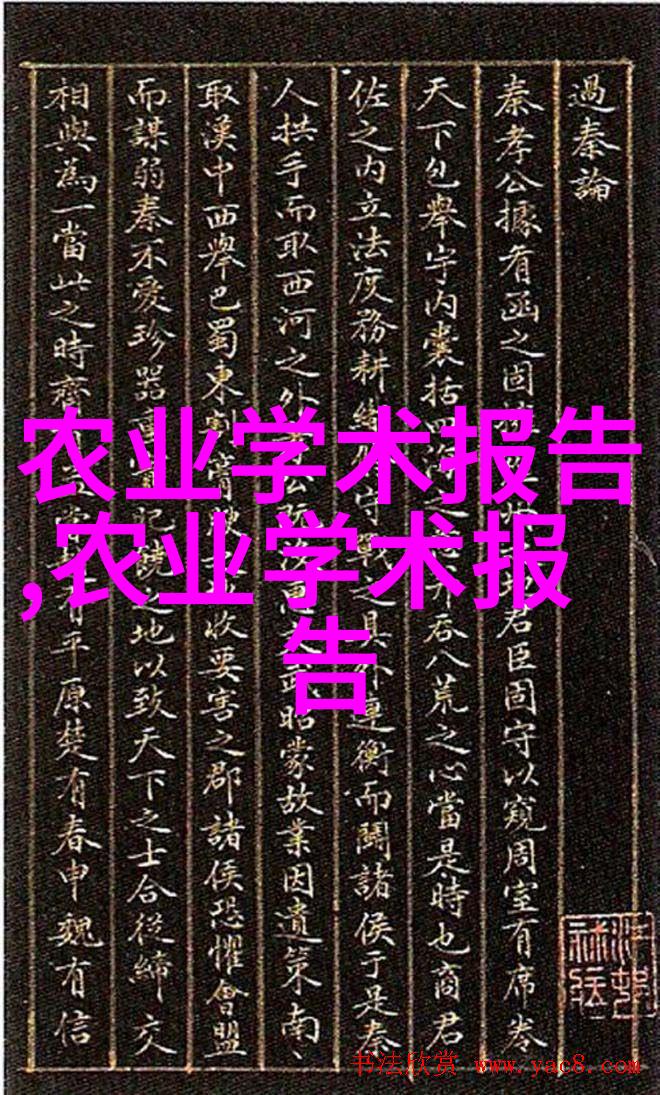 過秦論
秦孝公據有函之固君臣固守以窺周室有席卷
天下包舉宇內囊括四并吞八荒之心當是時也商君
佐之內立法度務耕守戰之具外連衡而鬭諸侯于是秦
人拱手而取西河之外昭蒙故業因遺策南
取漢中西舉巴蜀東割收要害之郡諸侯恐懼會盟
而謀弱秦不愛珍器重寶肥饒之地以致天下之士合從締交
相與為一當此之時齊有平原楚有春申魏有信
农业学术报告
,农业学术报
告
书法欣赏 www.yac8.com